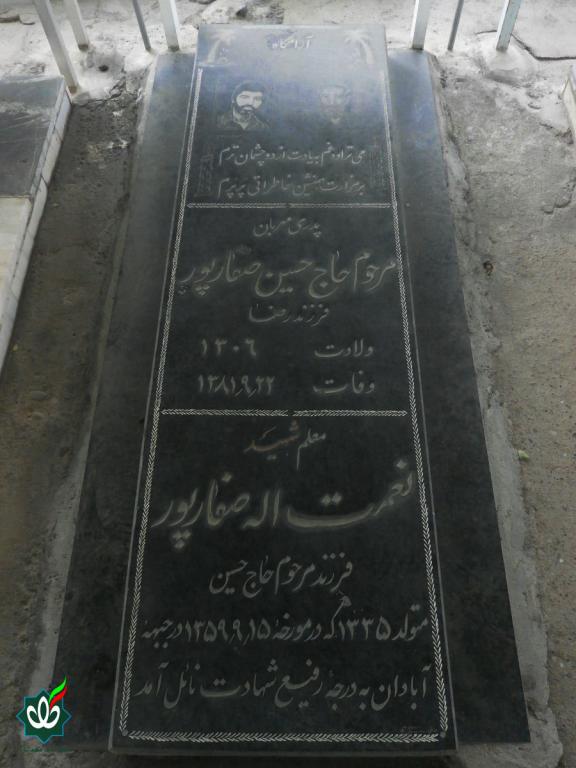 آرامگاه
می تراود غم بیادت از دو چشمان ترم
بر مزارت همنشین خاطراتی پرپرم
پدری مهربان
مرحوم حاج حسین صفارپور
فرزند رضا
ولادت ۱۳۰۶
وفات ۱۳۸۱٫۹٫۲۲
معلم شهید
نعمت اله صفارپور
فرزند مرحوم حاج حسین
متولد ۱۳۳۵ که در مورخهٔ ۱۳۵۹٫۹٫۱۵ در جبههٔ
آبادان به درجهٔ رفیع شهادت نائل آمد